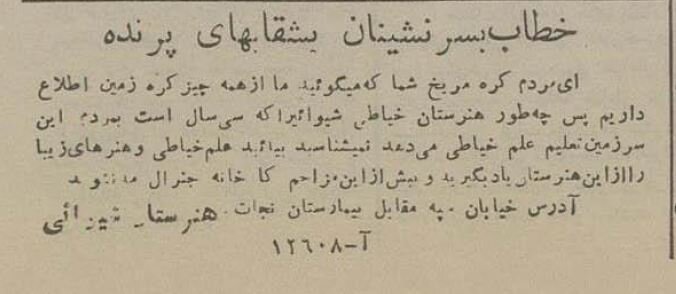 خطاب بسرنشینان بشقابهای پرنده
ای مردم کره مریخ شما که میگوئید ما از همه چیز کره زمین اطلاع
داریم پس چه‌طور هنرستان خیاطی شیوائیرا که سی سال است بمردم این
سرزمین تعلیم علم خیاطی می‌دهد نمیشناسید بیائید علم خیاطی و هنرهای زیبا
را از این هنرستان یاد بگیرید و بیش از این مزاحم خانه جنرال
آدرس خیابان سپه مقابل بیمارستان نجات. هنرستان
آ-۱۲۶۰۸